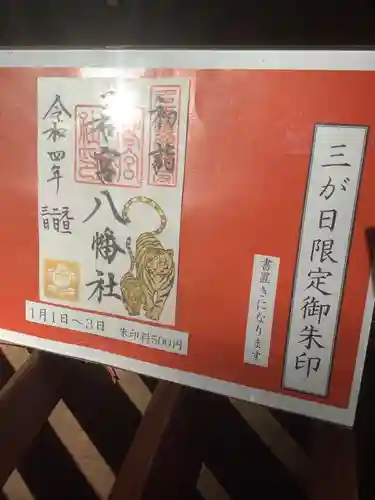 三が日限定御朱印
書置きになります
初詣
宮八幡社
令和四年
1月1日〜3日 朱印料500円